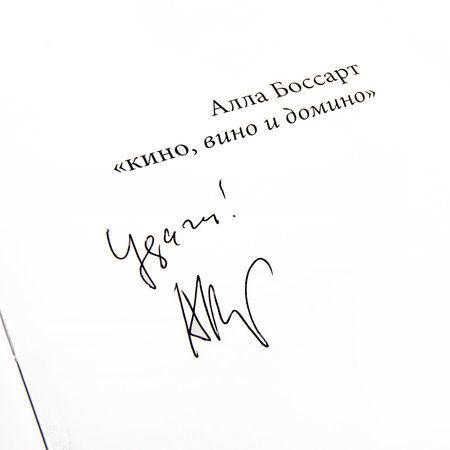 Алла Боссарт
«кино, вино и домино»
Удачи!